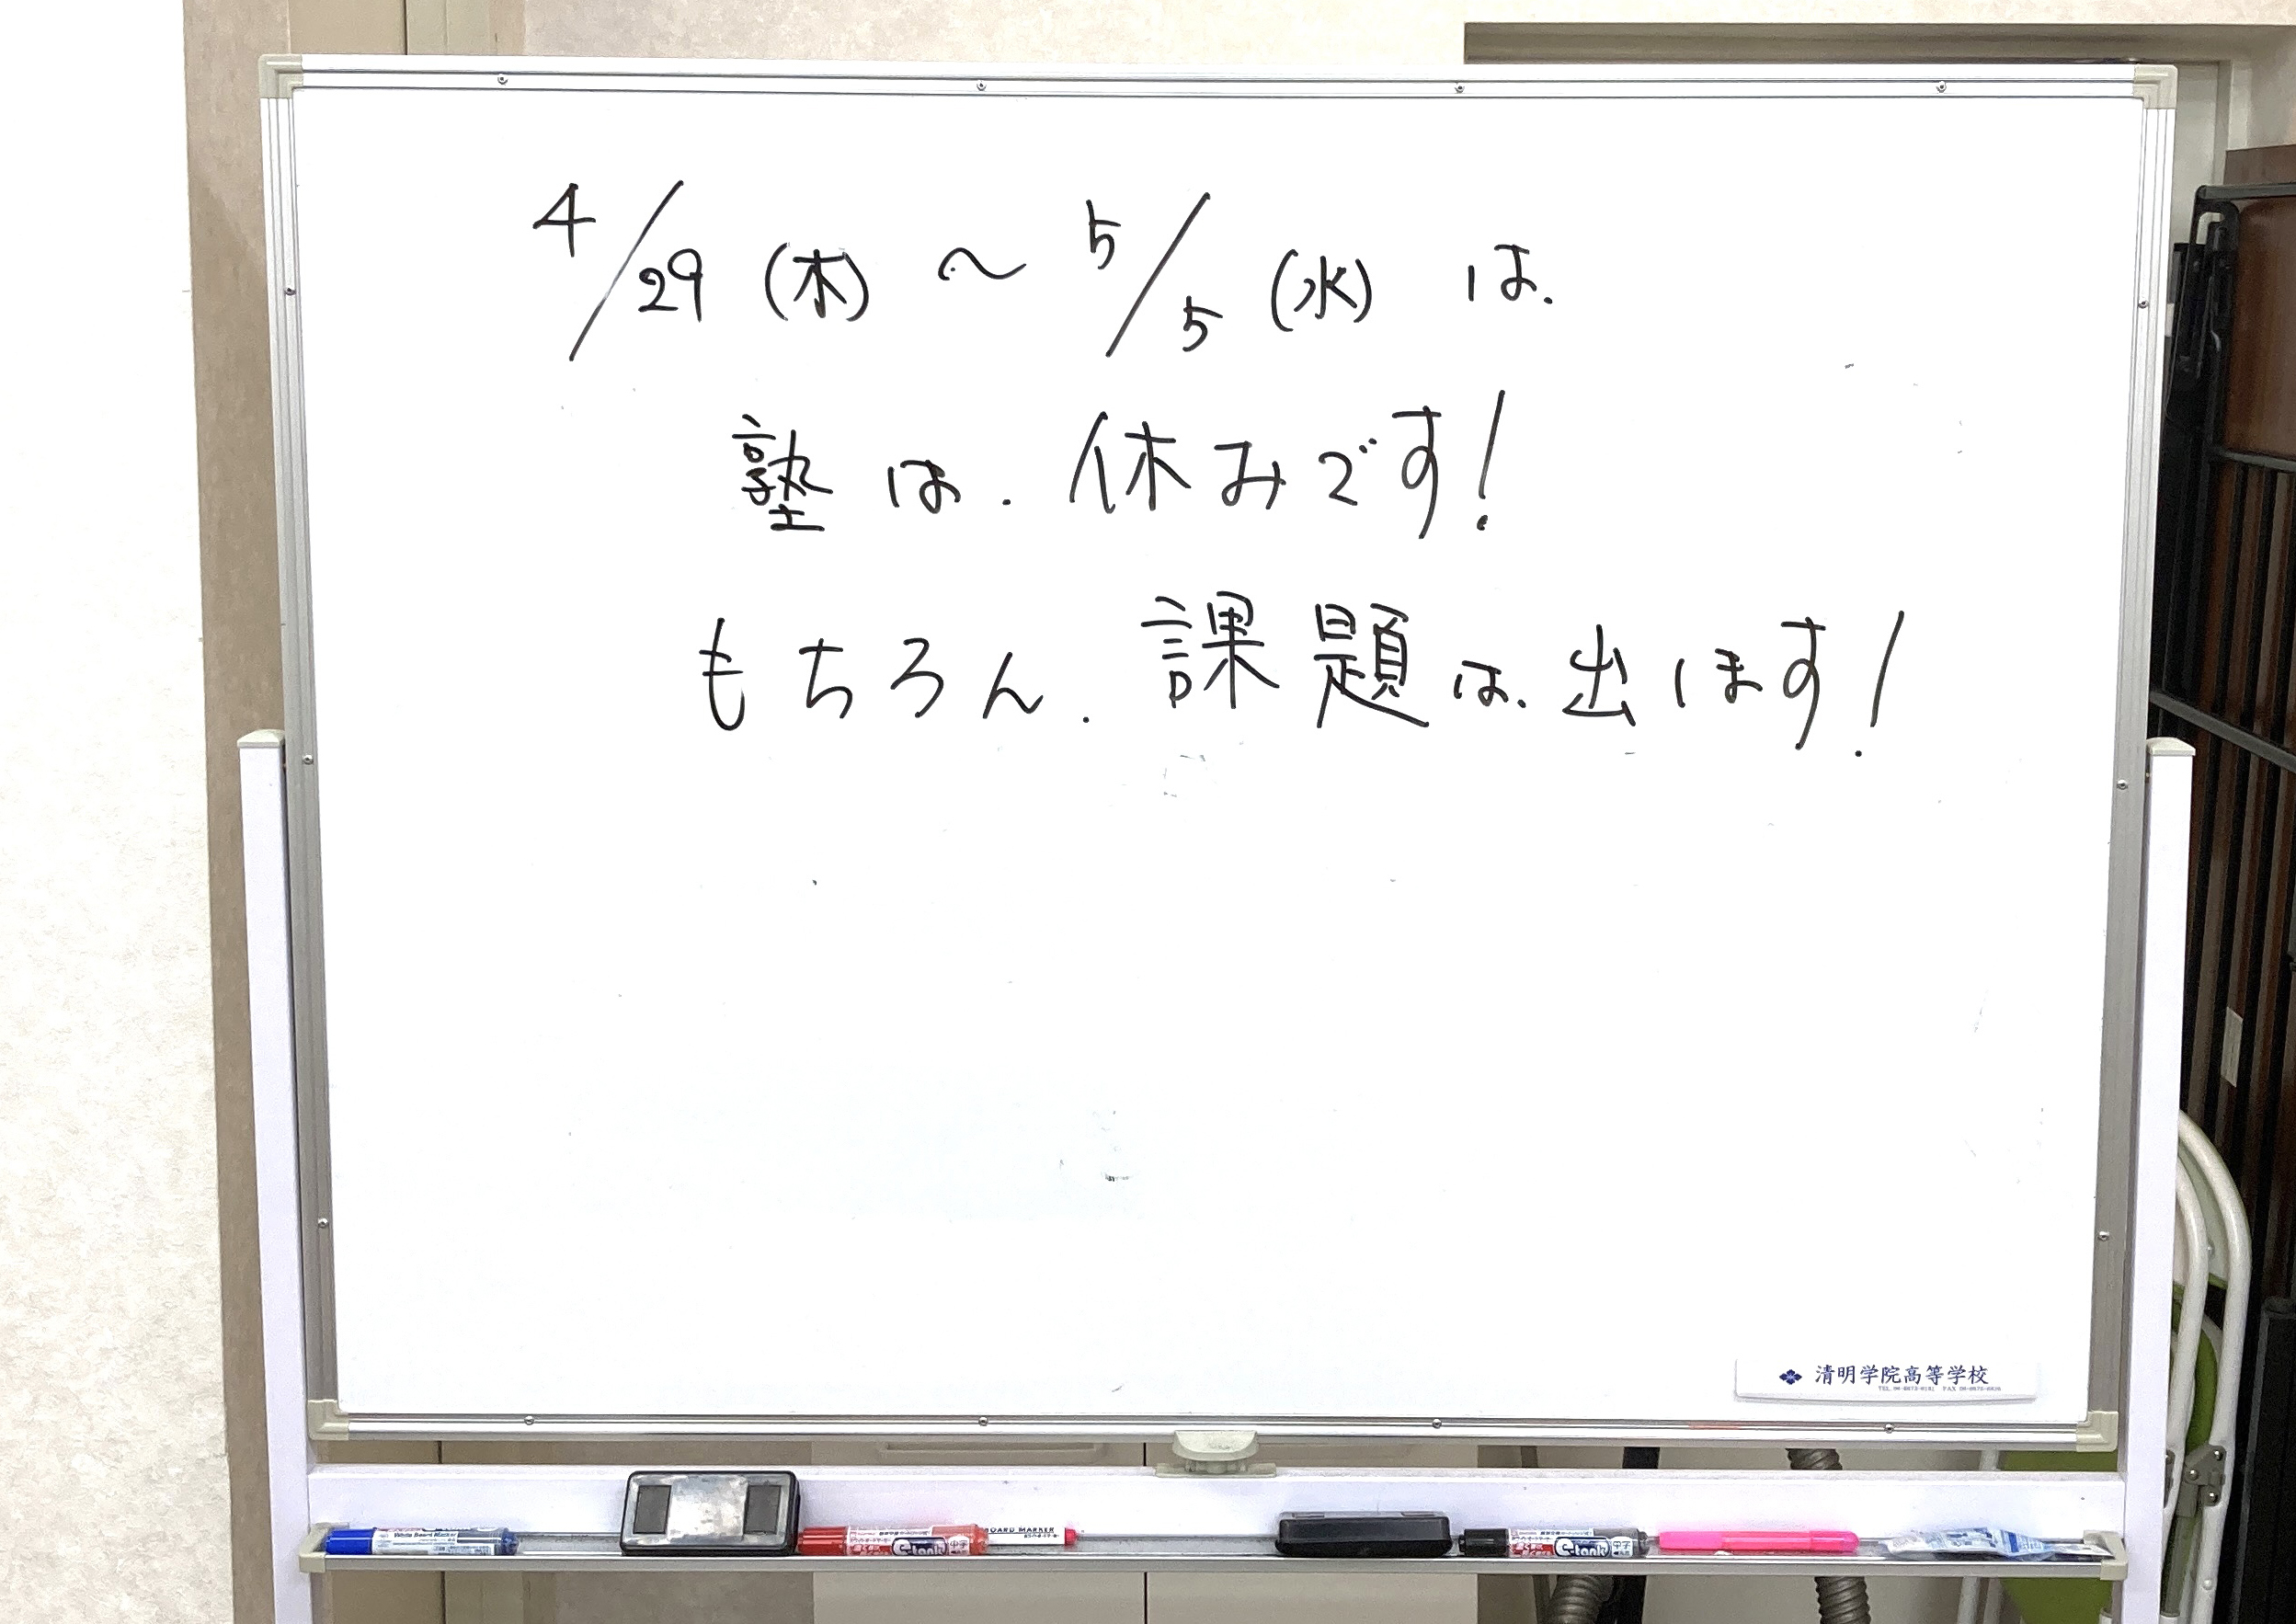 4/29(木)～5/5(水)は、
塾は、休みです!
もちろん、課題は、出します!
清明学院高等学校
White Board Marker
BOARD MARKER